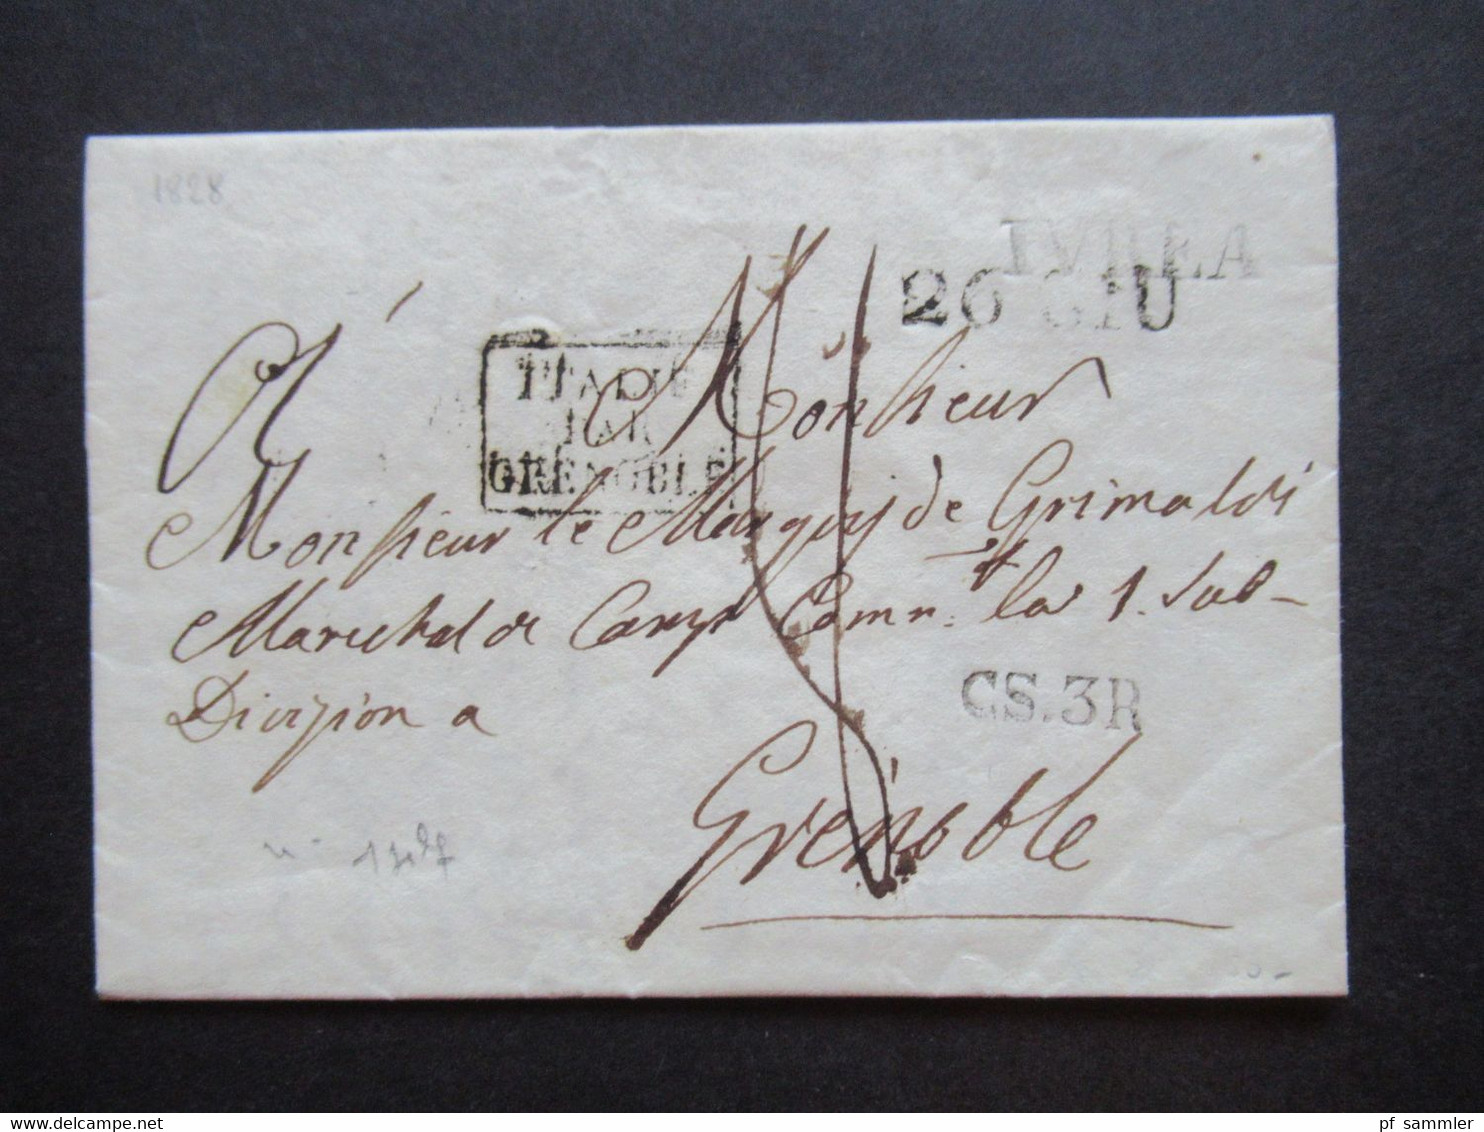 1828
IVREA
26 GIU
ITALIE
PAR
GRENOBLE
À Monsieur
Monsieur le Marquis de Grimaldi
Marechal de Camp Comm.t la 1. Sub-
Division a
CS.3R
Grénoble
pf sammler